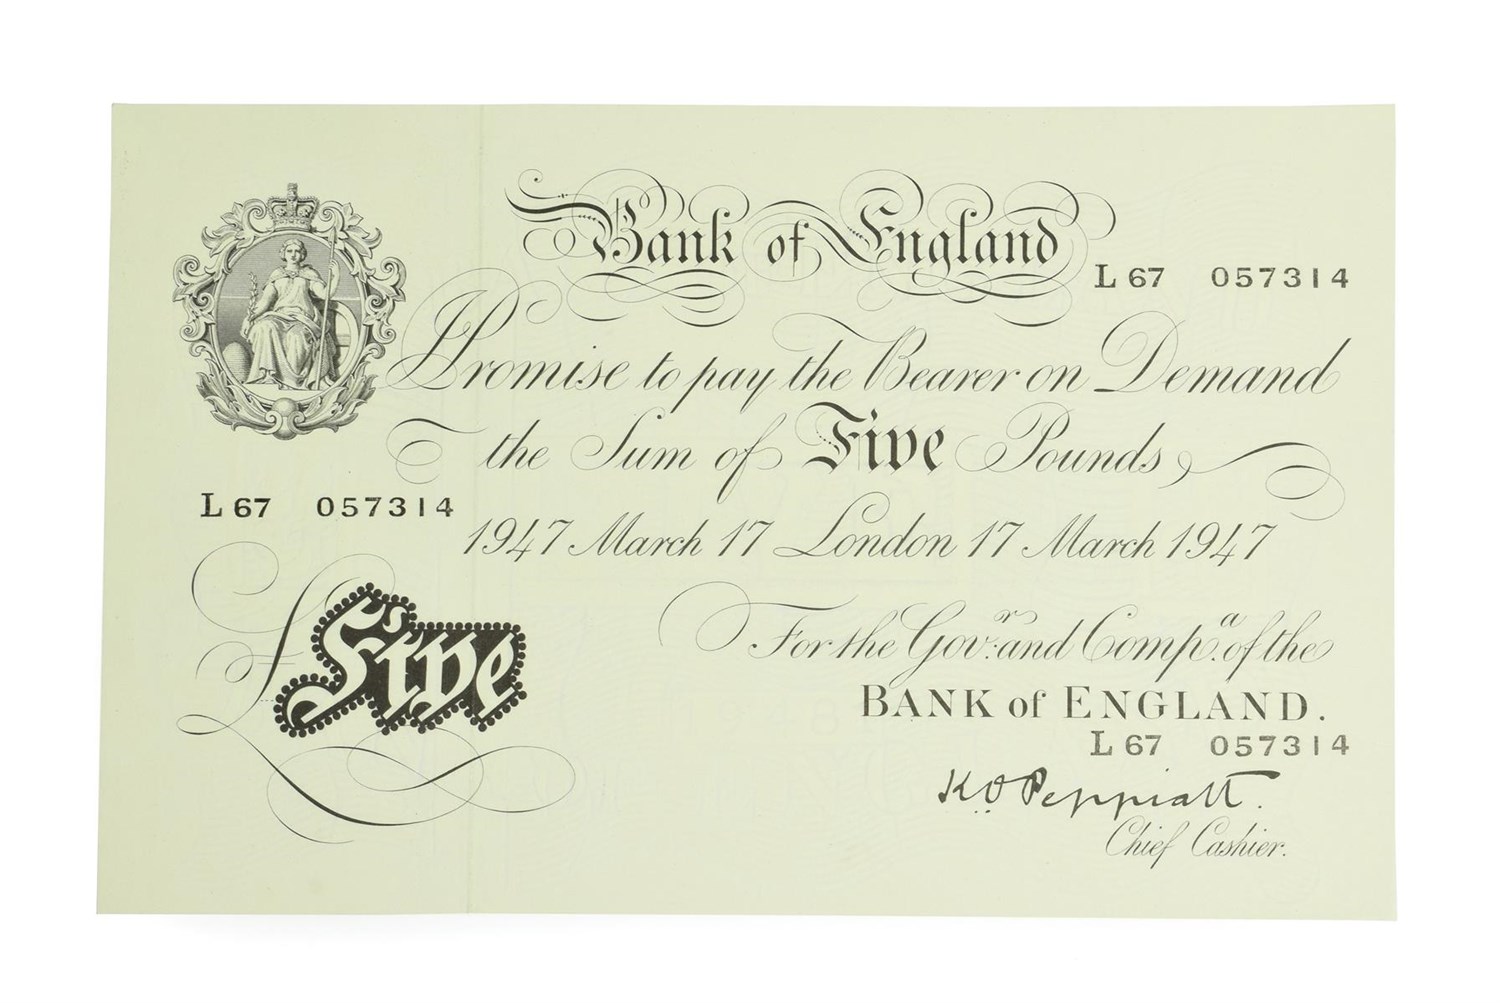 Bank of England
L 67 057314
I Promise to pay the Bearer on Demand
the Sum of Five Pounds
L 67 057314
1947 March 17 London 17 March 1947
For the Gov.r and Comp.a of the
BANK of ENGLAND.
£ Five
L 67 057314
K. O. Peppiatt.
Chief Cashier.